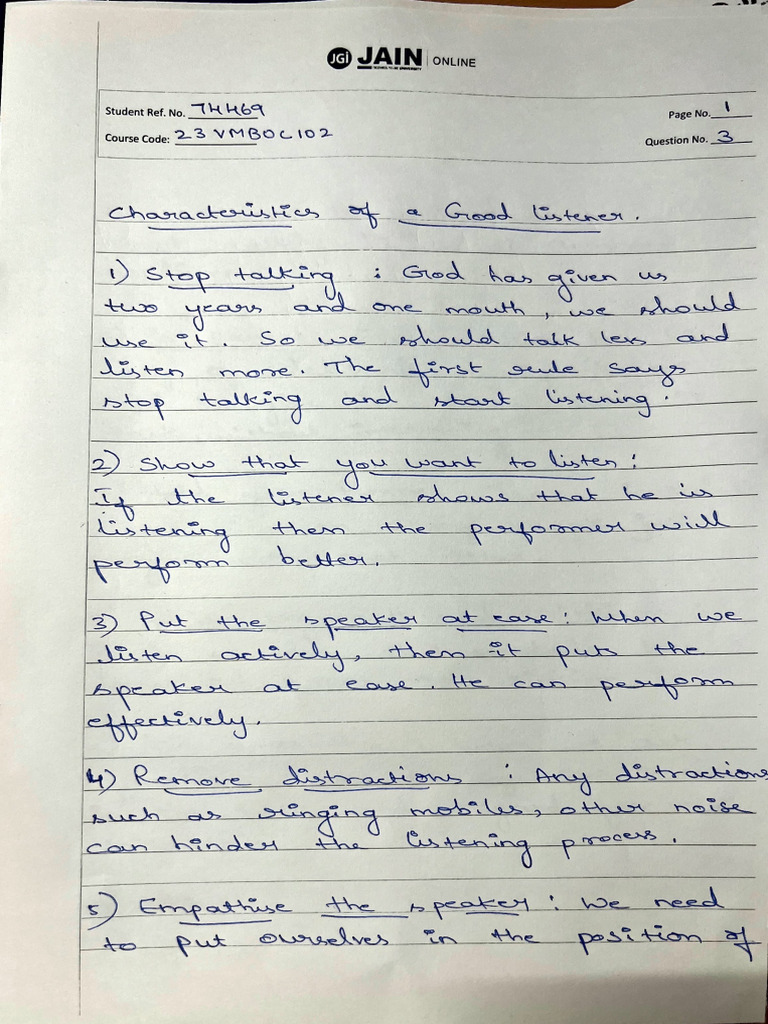 JGi JAIN ONLINE
Student Ref. No. 74469 Page No. 1
Course Code: 23VMBOC102 Question No. 3
Characteristics of a Good listener.
1) Stop talking : God has given us
two years and one mouth, we should
use it. So we should talk less and
listen more. The first rule says
stop talking and start listening.
2) Show that you want to listen:
If the listener shows that he is
listening then the performer will
perform better.
3) Put the speaker at ease: When we
listen actively, then it puts the
speaker at ease. He can perform
effectively.
4) Remove distractions : Any distractions
such as ringing mobiles, other noise
can hinder the listening process.
5) Empathise the speaker: We need
to put ourselves in the position of